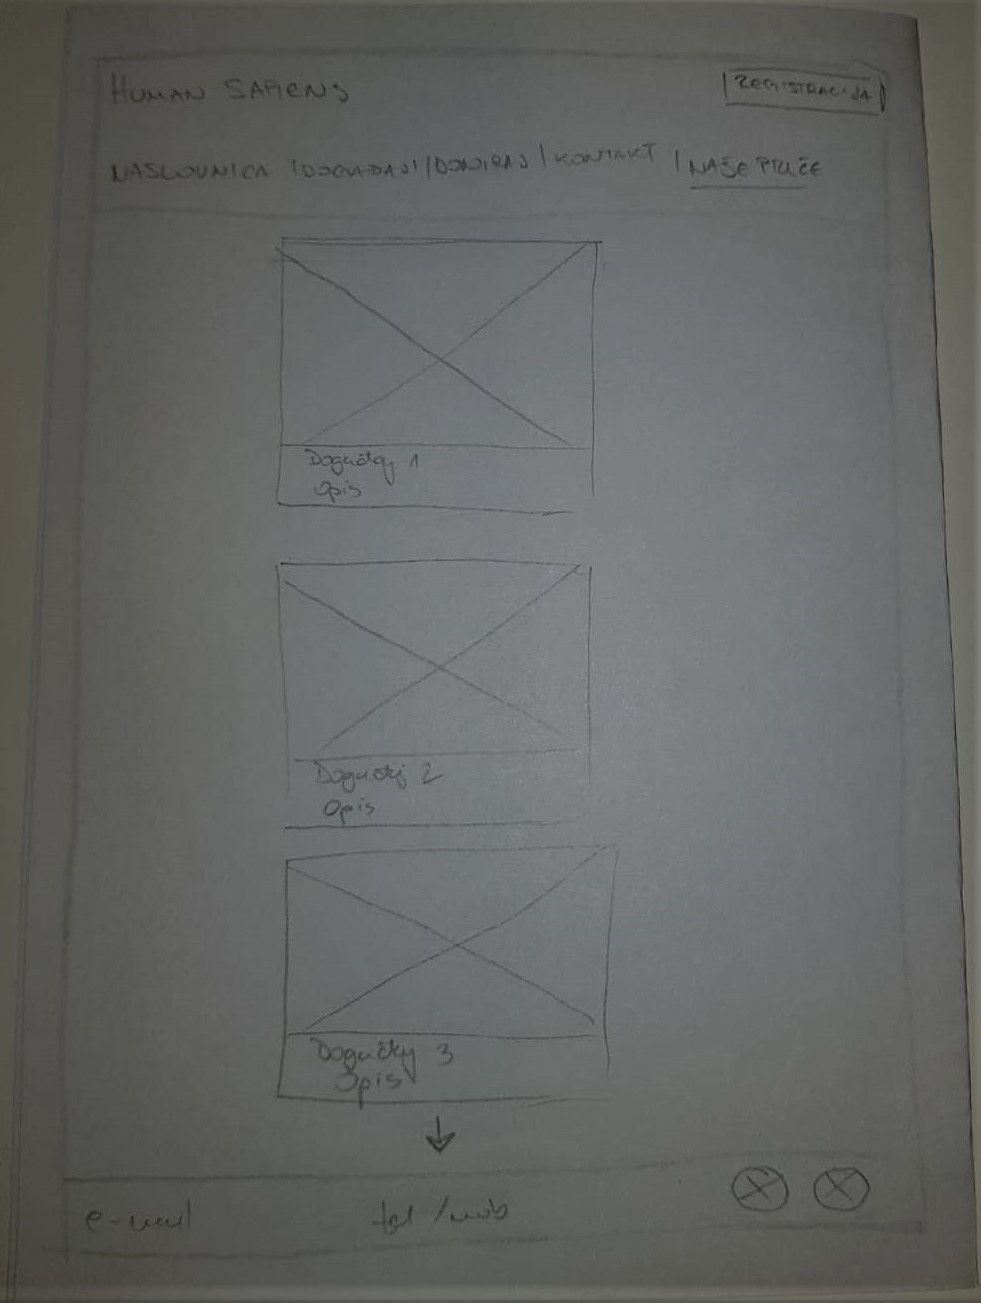 HUMAN SAPIENS
REGISTRACIJA
NASLOVNICA / DOGAĐAJI / DONIRAJ / KONTAKT / NAŠE PRIČE
Događaj 1
Opis
Događaj 2
Opis
Događaj 3
Opis
e-mail
tel / mob